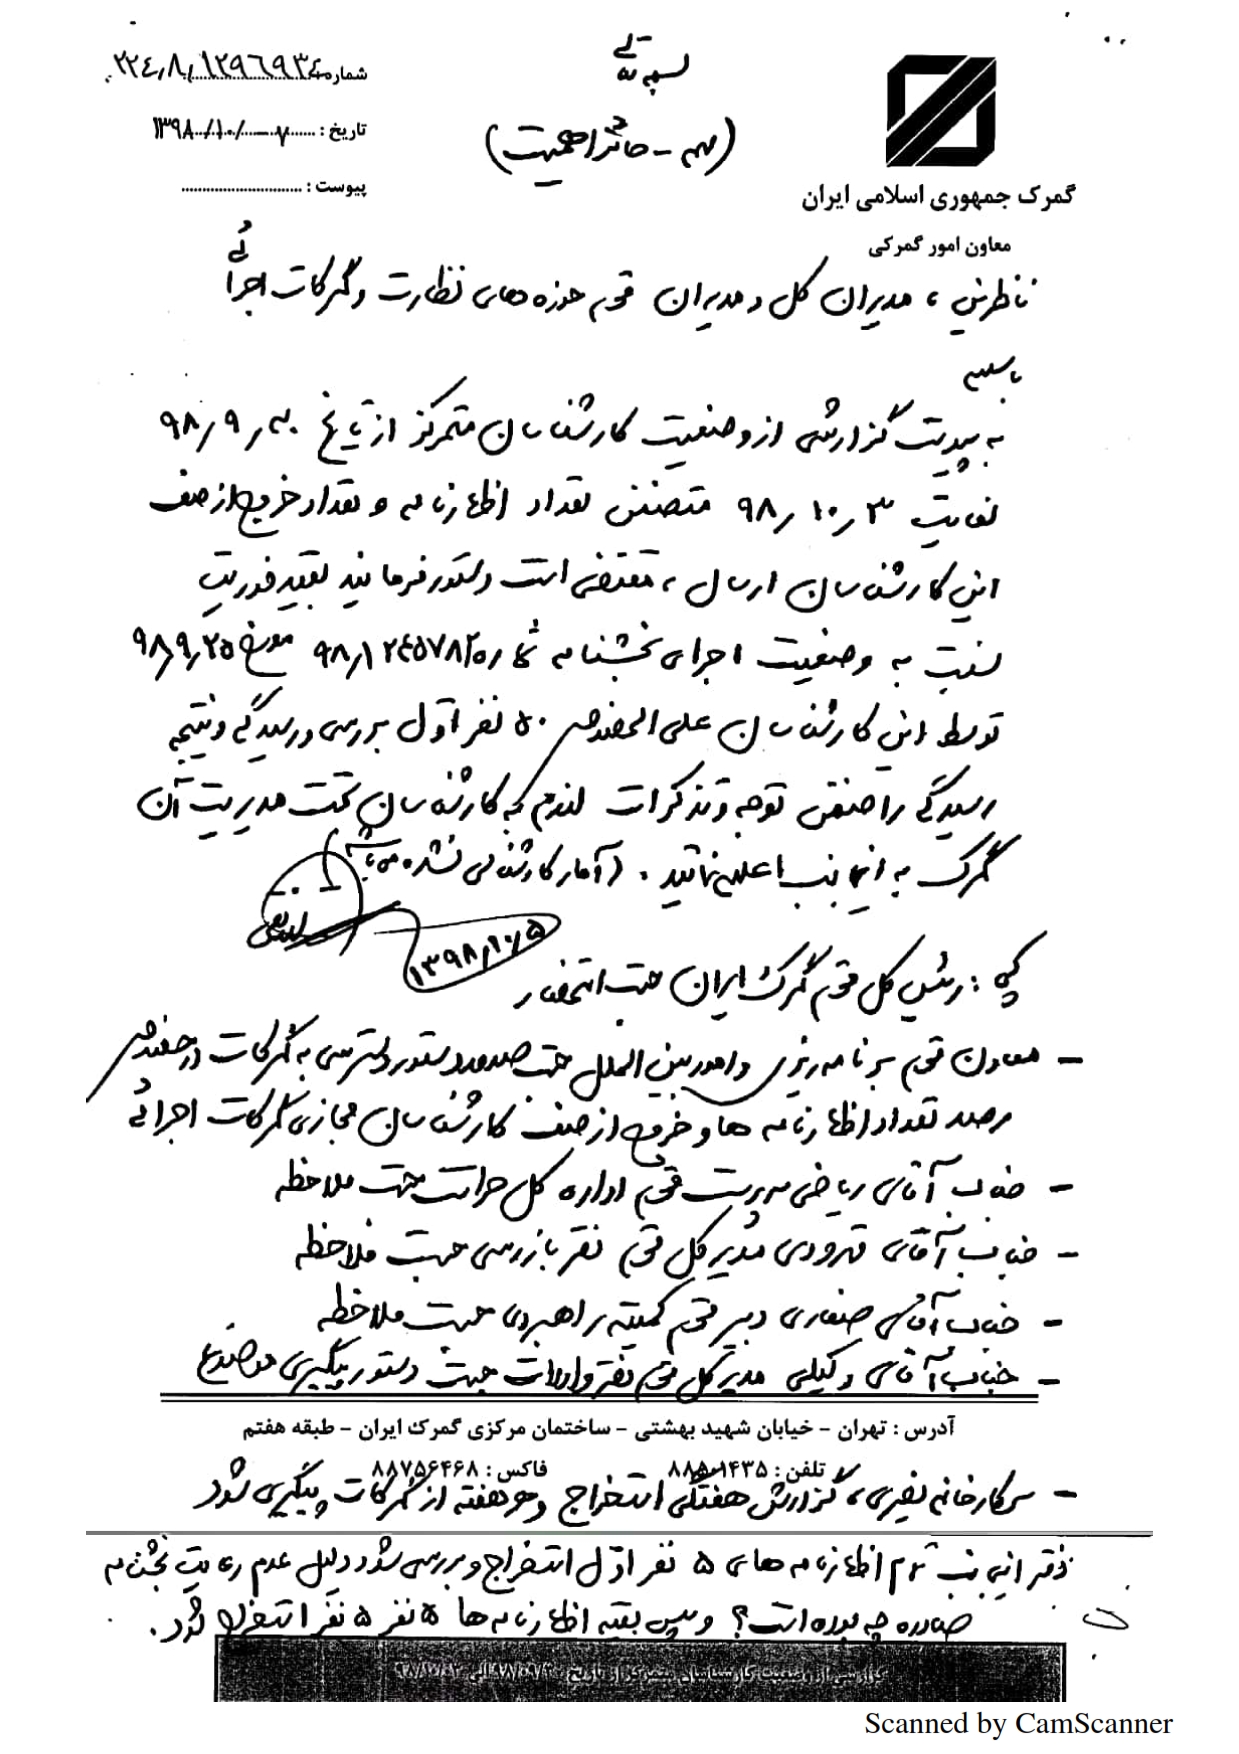 بسمه تعالی
شماره: ۲۲۴/۸/۱۲۹۶۹۳۴
تاریخ: ۱۳۹۸/۱۰/۰۷
پیوست:
(مهم - حائز اهمیت)
گمرک جمهوری اسلامی ایران
معاون امور گمرکی
ناظرین، مدیران کل و مدیران محترم حوزه های نظارت و گمرکات اجرائی
باسلام
به پیوست گزارشی از وضعیت کارشناسان متمرکز از تاریخ ۹۸/۹/۲۰
لغایت ۹۸/۱۰/۳ متضمن تعداد اظهارنامه و تعداد خروج از صف
این کارشناسان ارسال، مقتضی است دستور فرمائید بقید فوریت
نسبت به وضعیت اجرای بخشنامه شماره ۹۸/۱۲۴۵۷۸۲ مورخ ۹۸/۹/۲۵
توسط این کارشناسان علی الخصوص ۵۰ نفر اول بررسی و رسیدگی و نتیجه
رسیدگی را ضمن توجه و تذکرات لازم به کارشناسان تحت مدیریت آن
گمرک به اینجانب اعلام نمائید. (آمار کارشناسی نشده می باشد)
۱۳۹۸/۱۰/۵
کپی: رئیس کل محترم گمرک ایران جهت استحضار
- معاون محترم برنامه ریزی و امور بین الملل جهت صدور دستور دسترسی به گمرکات درخصوص
رصد تعداد اظهارنامه ها و خروج از صف کارشناسان مجازی گمرکات اجرائی
- جناب آقای ریاضی سرپرست محترم اداره کل حراست جهت ملاحظه
- جناب آقای فرودی مدیرکل محترم دفتر بازرسی جهت ملاحظه
- جناب آقای صفاری دبیر محترم کمیته راهبردی جهت ملاحظه
- جناب آقای وکیلی مدیرکل محترم دفتر واردات جهت دستور پیگیری موضوع
آدرس: تهران - خیابان شهید بهشتی - ساختمان مرکزی گمرک ایران - طبقه هفتم
تلفن: ۸۸۵۰۱۴۳۵ فاکس: ۸۸۷۵۶۴۶۸
- سرکار خانم نصیری، گزارش هفتگی استخراج و هر هفته از گمرکات پیگیری شود
دفتر اینجانب تمام اظهارنامه های ۵ نفر اول استخراج و بررسی شود دلیل عدم رعایت بخشنامه
صادره چه بوده است؟ و سپس بقیه اظهارنامه ها ۵ نفر ۵ نفر استخراج شود.
گزارشی از وضعیت کارشناسان متمرکز از تاریخ
Scanned by CamScanner